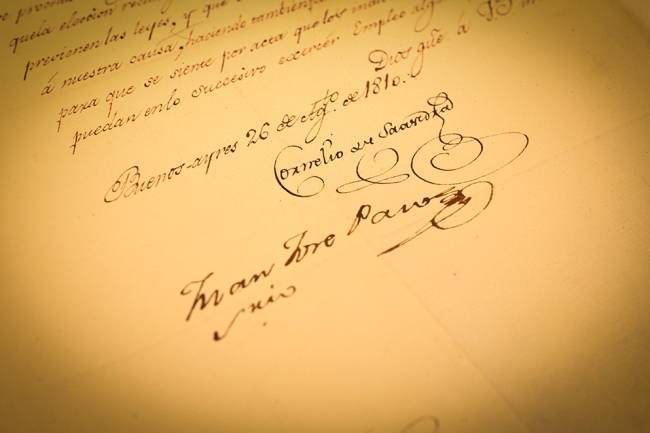 quela eleccion
previenen las leyes, y que
á nuestra causa, haciendo tambien
para que se siente por acta que los
puedan en lo succesivo exercer Empleo
Dios gũe. á
Buenos-ayres 26 de Agto. de 1810.
Cornelio de Saavedra
Juan Jose Paso
Srio